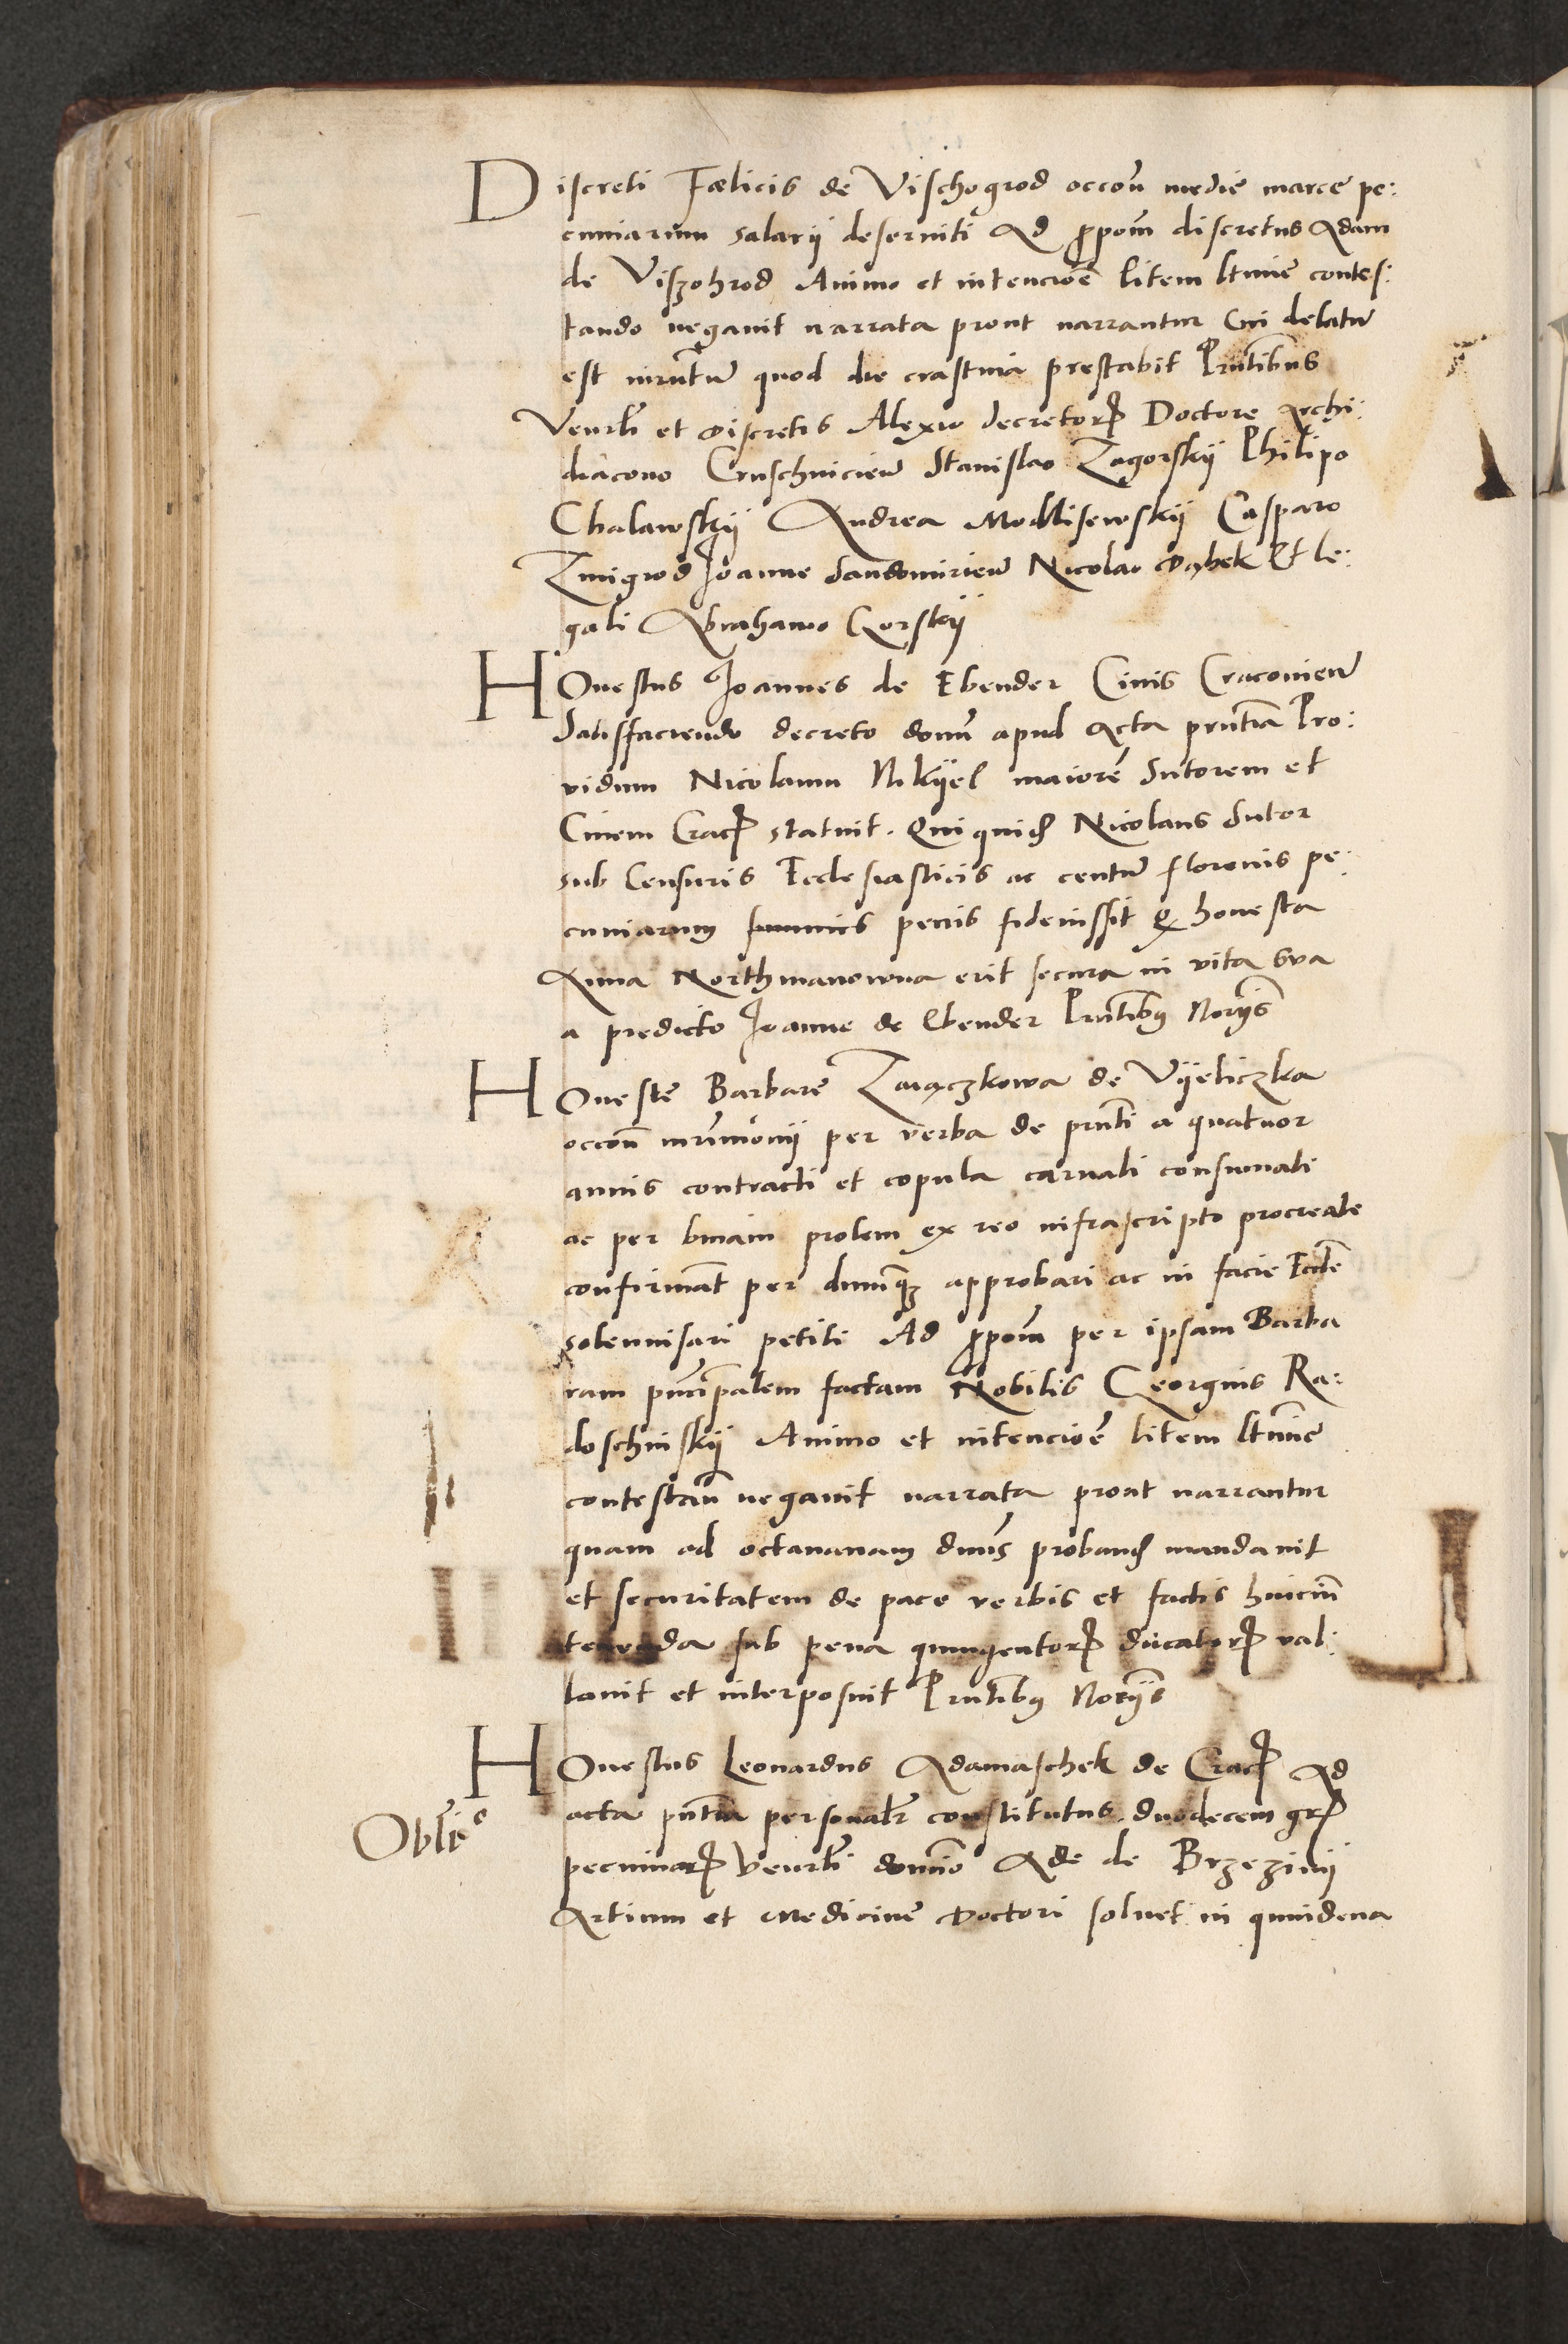 Discreti Fœlicis de Vischogrod occoñ medie marce pe:
cuniarum salarii deserviti Ad ꝓpoñ discretus Adam
de Viszohrod Animo et intencioē litem ltimē contes:
tando negavit narrata prout narrantur Cui delatū
est iurñtū quod die crastina prestabit Prñtibus
Venrli et discretis Alexio decretoꝝ Doctore Archi:
diacono Cruschvicieñ Stanislao Zagorskij Philipo
Chalawskij Andrea Modlisewskij Casparo
Zmigrod Joanne Sandomirieñ Nicolao Dąbek Et le:
gali Abrahamo Gorskij
HOnestus Joannes de Ebender Civis Cracovieñ
Satisfaciendo decreto domī apud Acta prñtia Pro:
vidum Nicolaum Nikijel maiorē Sutorem et
Civem Cracꝝ statuit. Qui quidē Nicolaus Sutor
sub Censuris Ecclesiasticis ac centū florenis pe:
cuniarum penis fideiussit ꝙ honesta
Anna Northmanowna erit secura in vita sva
a predicto Joanne de Ebender Prñtibꝰ Norijs
HOneste Barbare Zaiączkowa de Vijeliczka
occoñ mr̃imonii per verba de prñti a quatuor
annis contracti et copula carnali consumati
ac per binam prolem ex reo infrascripto procreate
confirmat̃ per dnumqꝫ approbari ac in facie Eccle
solemnisari petiti Ad ꝓpoñ per ipsam Barba
ram principalem factam Nobilis Georgius Ra:
doschinskij Animo et intencioē litem ltimē
contestañ negavit narrata prout narrantur
quam ad octavanam dnus probanđ mandavit
et securitatem de pace verbis et factis huicin̄
tenenda sub pena quingentoꝝ ducatoꝝ val:
lavit et interposuit Prñtibꝰ Norijs
HOnestus Leonardus Adamaschek de Cracꝝ Ad
Oblīo
acta prñtia personalr̃ constitutus duodecem grꝝ
pecuniarꝝ Venrli domino Ade de Brzezinij
Artium et Medicine Doctori solvet in quindena